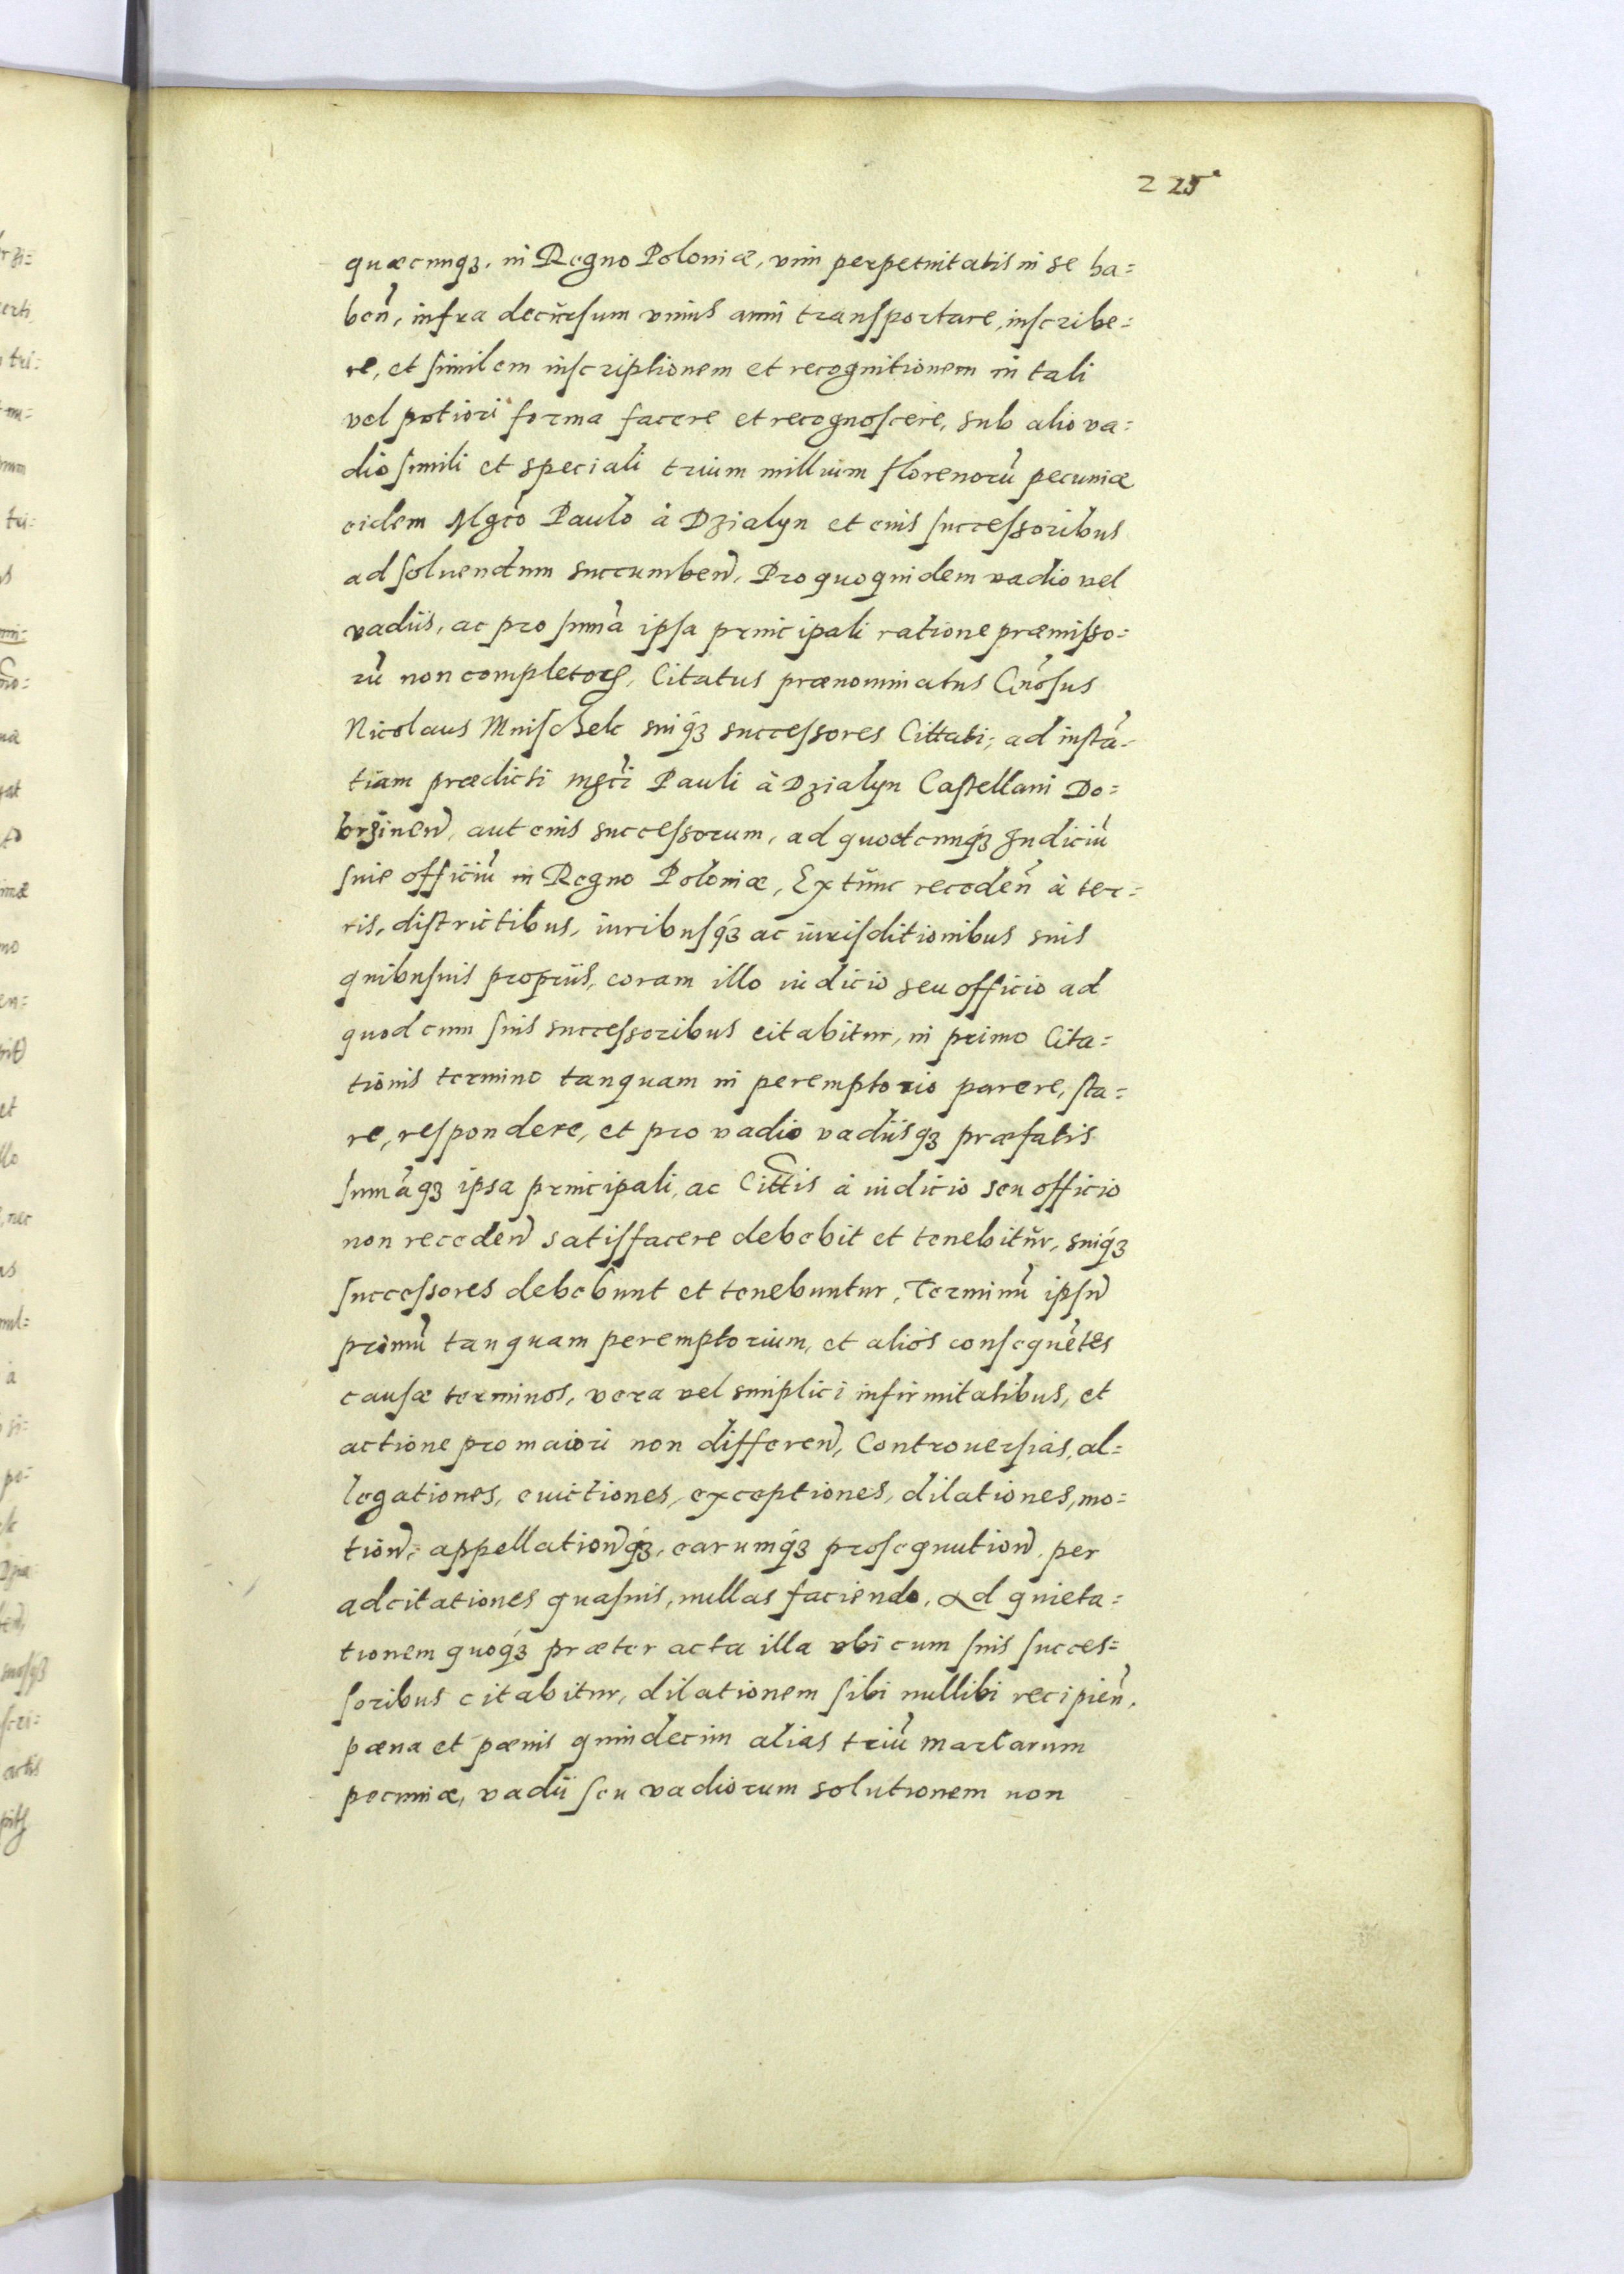 225
quæcunqꝫ, in Regno Poloniæ, vim perpetuitatis in se ha=
ben̄, infra decursum vnius anni transportare, inscribe=
re, et similem inscriptionem et recognitionem in tali
vel potiori forma facere et recognoscere, sub alio va=
dio simili et speciali trium millium florenorū pecuniæ
eidem Mgco Paulo à Dzialyn et eius successoribus
ad soluendum succumben̄, Pro quo quidem vadio vel
vadiis, ac pro sum̄a ipsa principali ratione præmisso=
rū non completoꝝ, Citatus prænominatus Gn̄osus
Nicolaus Mnischek suiqꝫ successores Cittati, ad instā=
tiam prædicti mgci Pauli à Dzialyn Castellani Do=
brzinen̄, aut eius successorum, ad quodcunqꝫ Iudiciū
siue officiū in Regno Poloniæ, Ex tunc receden̄ à ter=
ris, districtibus, iuribusqꝫ ac iurisditionibus suis
quibusuis propriis, coram illo iudicio seu officio ad
quod cum suis successoribus citabitur, in primo Cita=
tionis termino tanquam in peremptorio parere, sta=
re, respondere, et pro vadio vadiisqꝫ præfatis
sum̄aqꝫ ipsa principali, ac Citt̄is à iudicio seu officio
non receden̄ satisfacere debebit et tenebitur, suiqꝫ
successores debebunt et tenebuntur, Terminū ipsū
primū tanquam peremptorium, et alios consequētes
causæ terminos, vera vel simplici infirmitatibus, et
actione pro maiori non differen̄, Controuersias, al=
legationes, euictiones, exceptiones, dilationes, mo=
tion̄, appellation̄qꝫ, earumqꝫ prosequution̄, per
adcitationes quasuis, nullas faciendo, Ad quieta=
tionem quoqꝫ præter acta illa vbi cum suis succes=
soribus citabitur, dilationem sibi nullibi recipien̄,
pæna et pænis quindecim alias triū marcarum
pecuniæ, vadii seu vadiorum solutionem non